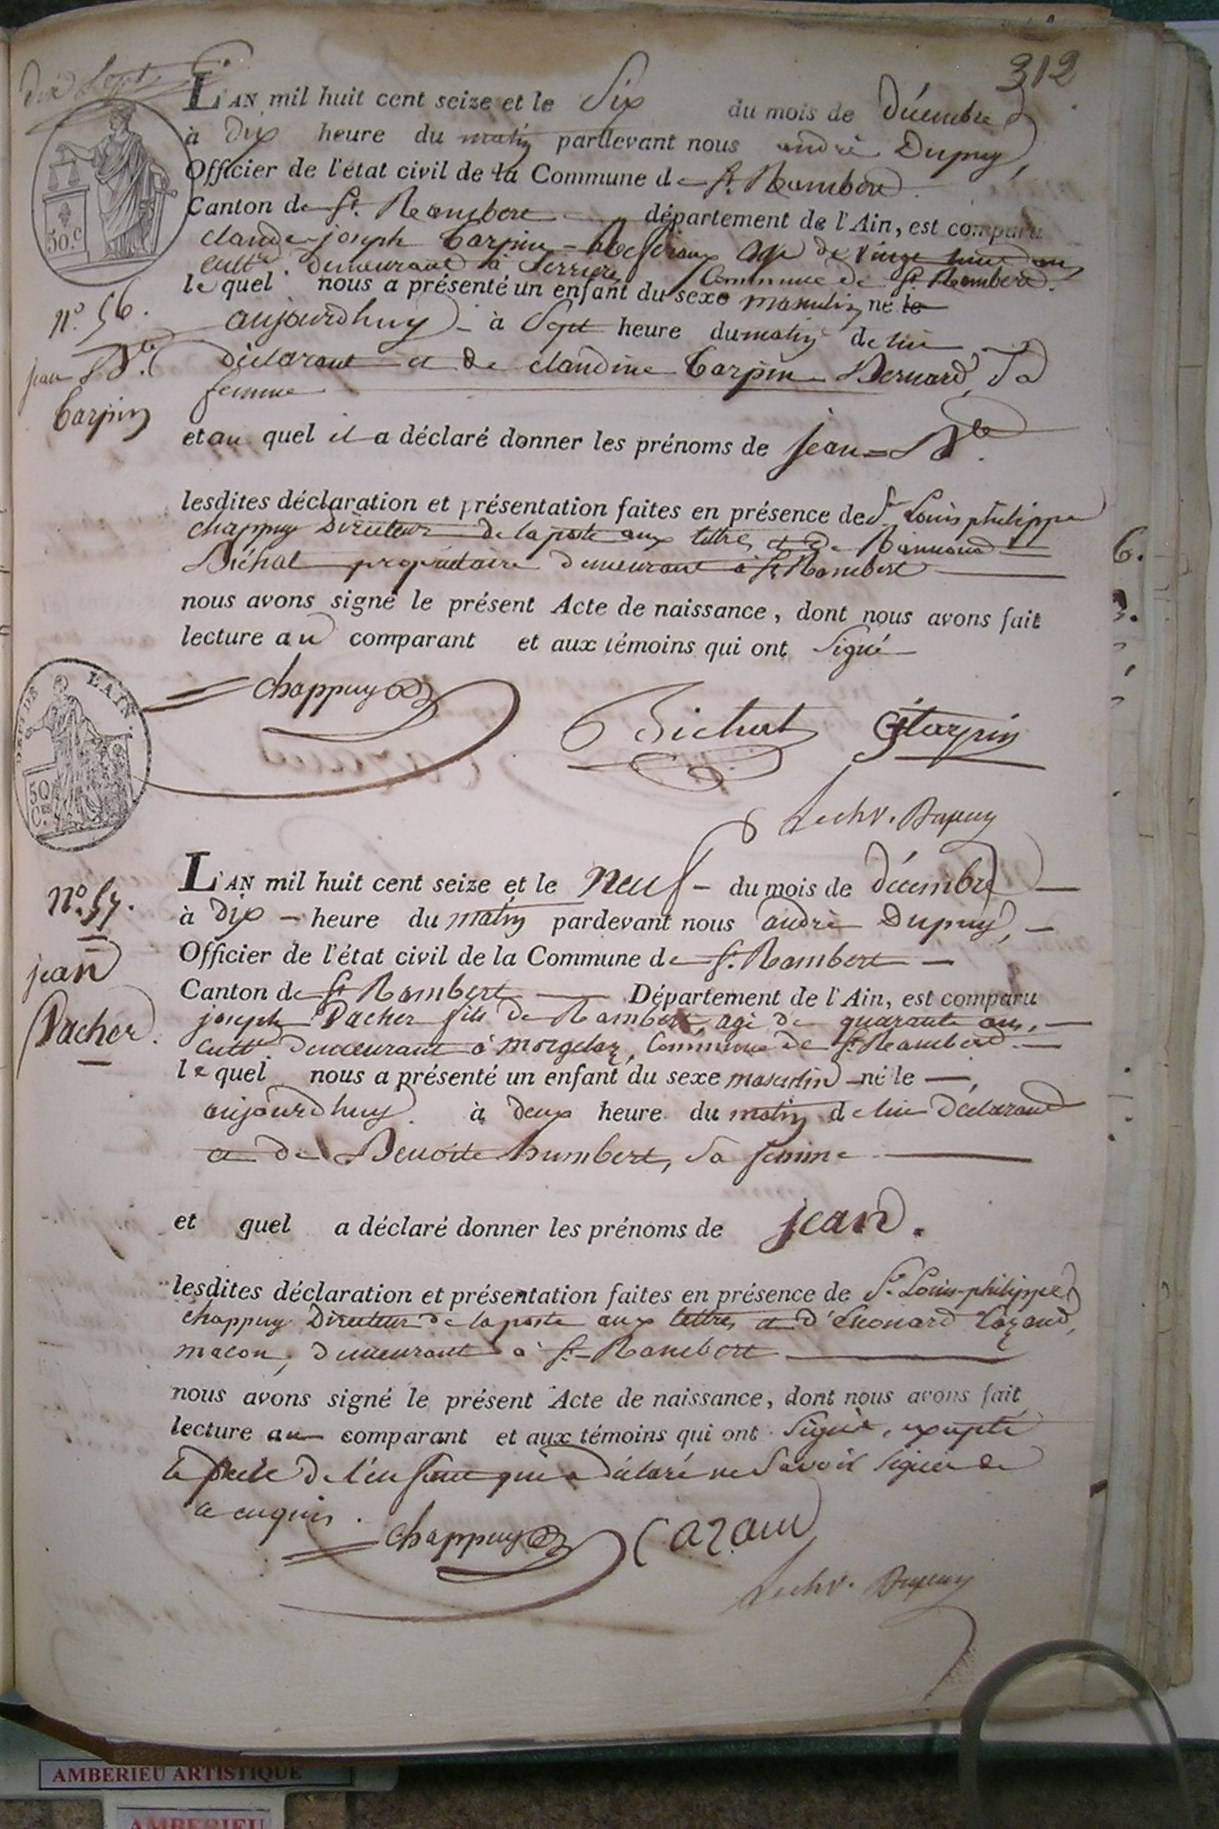 dix Sept
312
L'AN mil huit cent seize et le Six du mois de décembre
à dix heure du matin pardevant nous andré Dupuy,
Officier de l'état civil de la Commune de St. Rambert
Canton de St. Rambert département de l'Ain, est comparu
claude-joseph Tarpin - agé de vingt neuf ans
cultr. demeurant à Serriere Commune de St. Rambert.
le quel nous a présenté un enfant du sexe masculin né le
aujourdhuy à Sept heure du matin de lui
déclarant et de claudine Tarpin Bernard, Sa
femme
et au quel il a déclaré donner les prénoms de jean=Bte.
lesdites déclaration et présentation faites en présence de Sr Louis philippe
chappuy Directeur de la poste aux lettres et de
Bichat propriétaire demeurant à St Rambert
nous avons signé le présent Acte de naissance, dont nous avons fait
lecture au comparant et aux témoins qui ont Signé
n.° 56.
jean Bte.
Tarpin
50.c
DEPT DE L'AIN.
50 CES
chappuy
Bichat
Tarpin
Dupuy
n.° 57.
jean
Pacher.
L'AN mil huit cent seize et le neuf - du mois de décembre
à dix - heure du matin pardevant nous andré Dupuy,
Officier de l'état civil de la Commune de St. Rambert
Canton de St Rambert Département de l'Ain, est comparu
joseph Pacher fils de Rambert, agé de quarante ans,
cultr. demeurant à morgelaz, Commune de St. Rambert.
le quel nous a présenté un enfant du sexe masculin né le
aujourdhuy à deux heure du matin de lui Déclarant
et de Benoite humbert, Sa femme
et quel a déclaré donner les prénoms de jean.
lesdites déclaration et présentation faites en présence de Sr. Louis-philippe
chappuy Directeur de la poste aux lettres et d'Enonard Cazaud,
macon, demeurant à St. Rambert
nous avons signé le présent Acte de naissance, dont nous avons fait
lecture au comparant et aux témoins qui ont Signé, excepté
le père de l'enfant qui a déclaré ne Savoir Signer de
ce enquis.
chappuy
Cazaud
Dupuy
AMBERIEU ARTISTIQUE
AMBERIEU